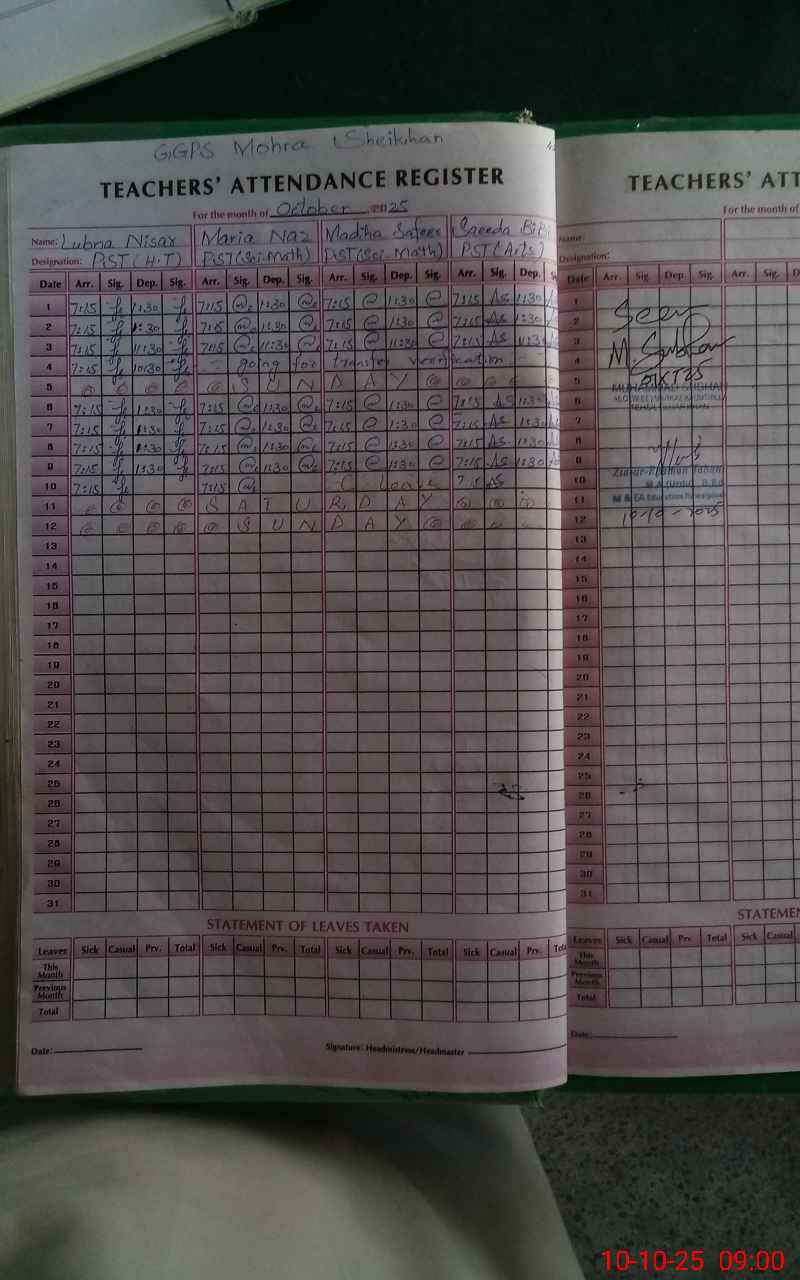 GGPS Mohra Sheikhan
TEACHERS' ATTENDANCE REGISTER
For the month of October 2025
Name: Lubna Nisar Maria Naz Madiha Safeer Saeeda Bibi
Designation: PST (H.T) PST (Sci-Math) PST (Sci-Math) PST (Arts)
Date Arr. Sig. Dep. Sig. Arr. Sig. Dep. Sig. Arr. Sig. Dep. Sig. Arr. Sig. Dep.
1 7:15 11:30 7:15 11:30 7:15 11:30 7:15 AS 11:30
2 7:15 11:30 7:15 11:30 7:15 11:30 7:15 AS 11:30
3 7:15 11:30 7:15 11:30 7:15 11:30 7:15 AS 11:30
4 7:15 10:30 going for transfer verification
5 S U N D A Y
6 7:15 11:30 7:15 11:30 7:15 11:30 7:15 AS 11:30
7 7:15 11:30 7:15 11:30 7:15 11:30 7:15 AS 11:30
8 7:15 11:30 7:15 11:30 7:15 11:30 7:15 AS 11:30
9 7:15 11:30 7:15 11:30 7:15 11:30 7:15 AS 11:30
10 7:15 7:15 C leave 7:15 AS
11 S A T U R D A Y
12 S U N D A Y
13
14
15
16
17
18
19
20
21
22
23
24
25
26
27
28
29
30
31
STATEMENT OF LEAVES TAKEN
Leaves Sick Casual Prv. Total Sick Casual Prv. Total Sick Casual Prv. Total Sick Casual Prv.
This Month
Previous Month
Total
Date: Signature: Headmistress/Headmaster
TEACHERS' ATT
For the month of
Name:
Designation:
Date Arr. Sig. Dep. Sig. Arr. Sig.
1
2 Seen
3
4 M. Subhan
5 MUHAMMAD SUBHAN
6
7
8
9
10 M.A (Urdu) B.Ed
11 M & EA Education Rawalpindi
12 10-10-2025
13
14
15
16
17
18
19
20
21
22
23
24
25
26
27
28
29
30
31
STATEMEN
Leaves Sick Casual Prv. Total Sick Casual
This Month
Previous Month
Total
Date:
10-10-25 09:00